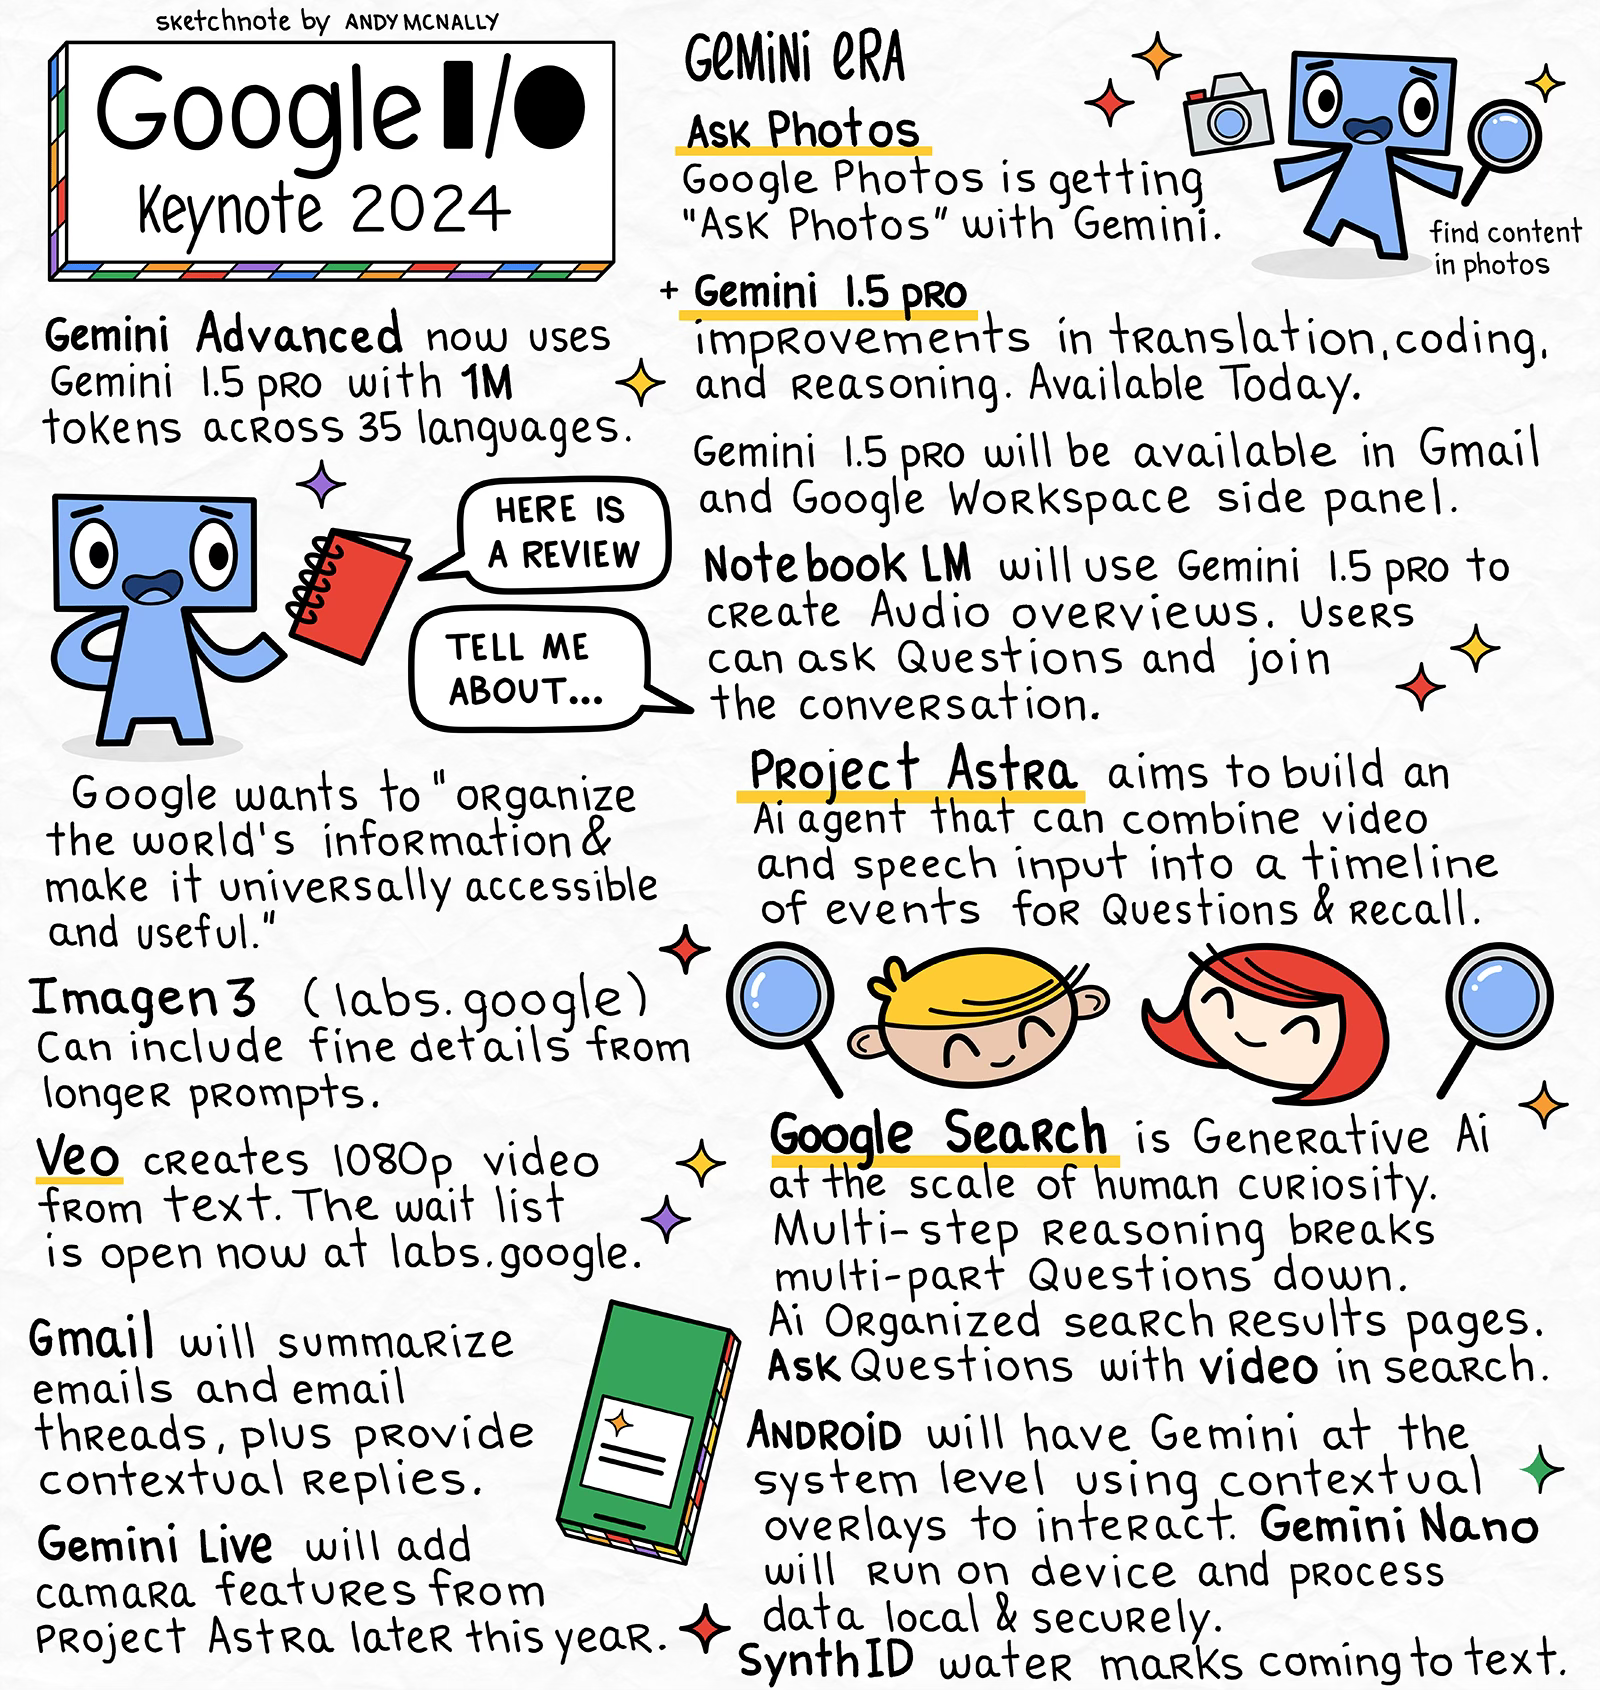 sketchnote by ANDY MCNALLY
Google I/O
Keynote 2024
Gemini Advanced now uses
Gemini 1.5 pro with 1M
tokens across 35 languages.
HERE IS
A REVIEW
TELL ME
ABOUT...
Google wants to "organize
the world's information &
make it universally accessible
and useful."
Imagen 3 (labs.google)
Can include fine details from
longer prompts.
Veo creates 1080p video
from text. The wait list
is open now at labs.google.
Gmail will summarize
emails and email
threads, plus provide
contextual replies.
Gemini Live will add
camara features from
Project Astra later this year.
Gemini era
Ask Photos
Google Photos is getting
"Ask Photos" with Gemini.
find content
in photos
+ Gemini 1.5 pro
improvements in translation, coding,
and reasoning. Available Today.
Gemini 1.5 pro will be available in Gmail
and Google Workspace side panel.
Notebook LM will use Gemini 1.5 pro to
create Audio overviews. Users
can ask Questions and join
the conversation.
Project Astra aims to build an
Ai agent that can combine video
and speech input into a timeline
of events for Questions & recall.
Google Search is Generative Ai
at the scale of human curiosity.
Multi-step reasoning breaks
multi-part Questions down.
Ai Organized search results pages.
Ask Questions with video in search.
Android will have Gemini at the
system level using contextual
overlays to interact. Gemini Nano
will run on device and process
data local & securely.
SynthID water marks coming to text.